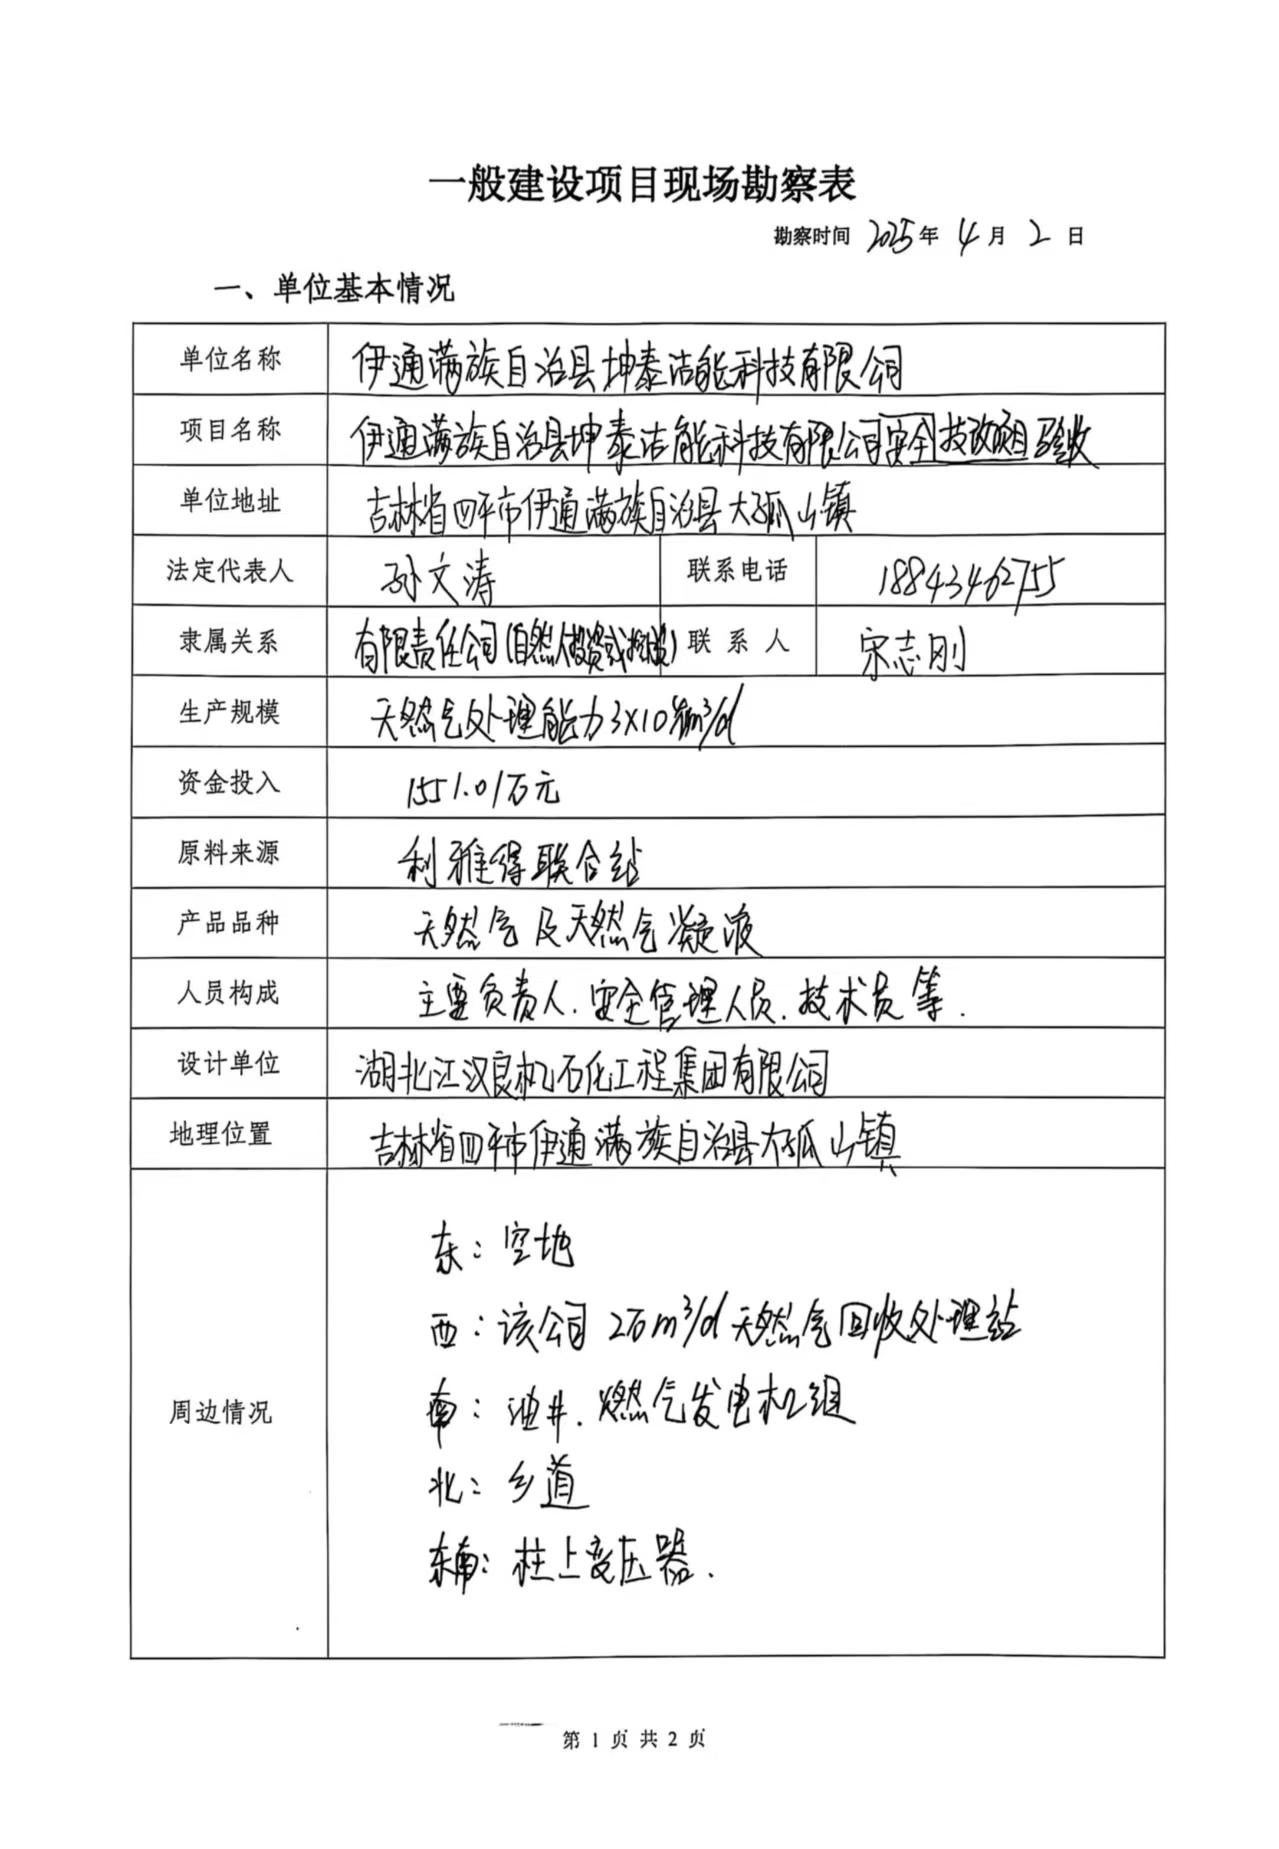 一般建设项目现场勘察表
勘察时间 2025年 4月 2日
一、单位基本情况
单位名称 伊通满族自治县坤泰洁能科技有限公司
项目名称 伊通满族自治县坤泰洁能科技有限公司安全技改项目验收
单位地址 吉林省四平市伊通满族自治县大孤山镇
法定代表人 孙文涛 联系电话 18843462755
隶属关系 有限责任公司(自然人投资或控股) 联系人 宋志刚
生产规模 天然气处理能力3×10⁴m³/d
资金投入 1551.01万元
原料来源 利雅得联合站
产品品种 天然气及天然气凝液
人员构成 主要负责人、安全管理人员、技术员等.
设计单位 湖北江汉良机石化工程集团有限公司
地理位置 吉林省四平市伊通满族自治县大孤山镇
东：空地
西：该公司2万m³/d天然气回收处理站
周边情况 南：油井、燃气发电机组
北：乡道
东南：柱上变压器.
第 1 页 共 2 页